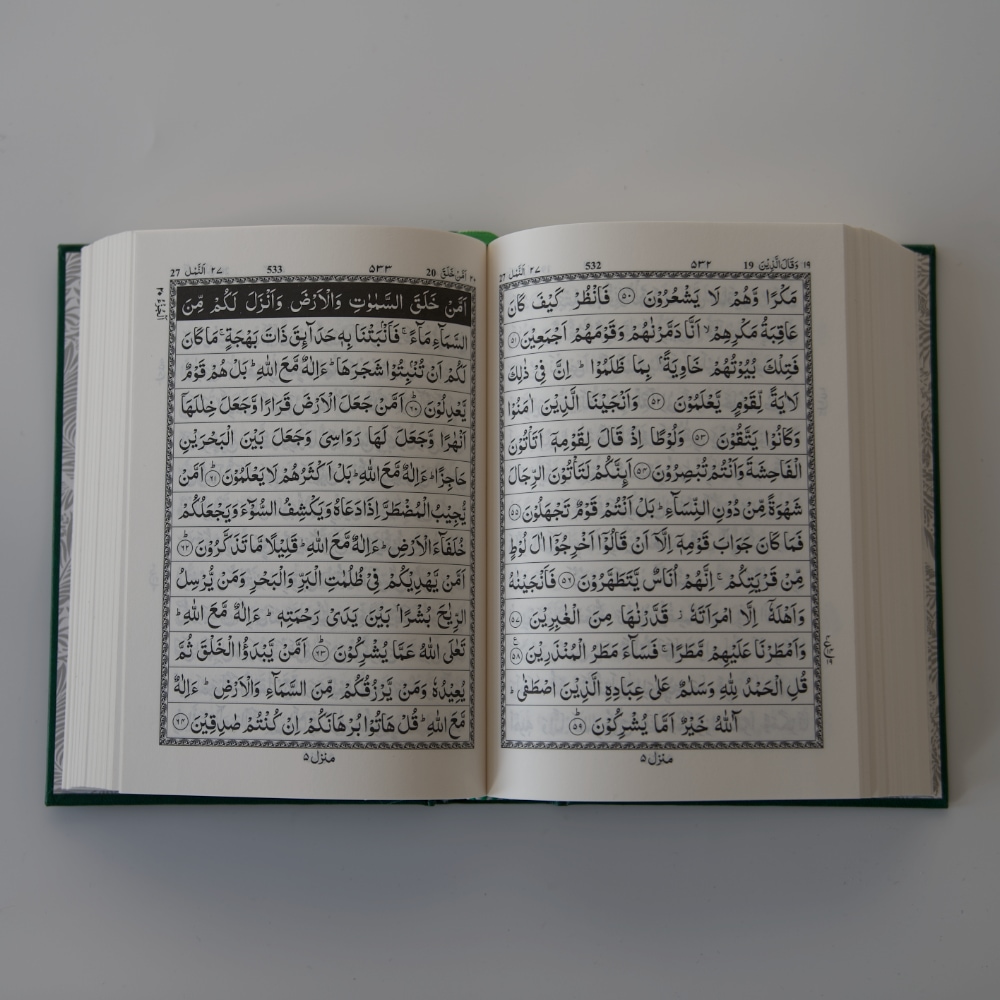 ١٩ وَقَالَ الَّذِيْنَ 19 ٥٣٢ 532 ٢٧ اَلنَّمْل 27
مَكْرًا وَّهُمْ لَا يَشْعُرُوْنَ ﴿٥٠﴾ فَانْظُرْ كَيْفَ كَانَ
عَاقِبَةُ مَكْرِهِمْ ۙ اَنَّا دَمَّرْنٰهُمْ وَقَوْمَهُمْ اَجْمَعِيْنَ ﴿٥١﴾
فَتِلْكَ بُيُوْتُهُمْ خَاوِيَةًۢ بِمَا ظَلَمُوْا ؕ اِنَّ فِيْ ذٰلِكَ
لَاٰيَةً لِّقَوْمٍ يَّعْلَمُوْنَ ﴿٥٢﴾ وَاَنْجَيْنَا الَّذِيْنَ اٰمَنُوْا
وَكَانُوْا يَتَّقُوْنَ ﴿٥٣﴾ وَلُوْطًا اِذْ قَالَ لِقَوْمِهٖۤ اَتَاْتُوْنَ
الْفَاحِشَةَ وَاَنْتُمْ تُبْصِرُوْنَ ﴿٥٤﴾ اَئِنَّكُمْ لَتَاْتُوْنَ الرِّجَالَ
شَهْوَةً مِّنْ دُوْنِ النِّسَآءِ ؕ بَلْ اَنْتُمْ قَوْمٌ تَجْهَلُوْنَ ﴿٥٥﴾
فَمَا كَانَ جَوَابَ قَوْمِهٖۤ اِلَّاۤ اَنْ قَالُوْۤا اَخْرِجُوْۤا اٰلَ لُوْطٍ
مِّنْ قَرْيَتِكُمْ ۚ اِنَّهُمْ اُنَاسٌ يَّتَطَهَّرُوْنَ ﴿٥٦﴾ فَاَنْجَيْنٰهُ
وَاَهْلَهٗۤ اِلَّا امْرَاَتَهٗ ؗ قَدَّرْنٰهَا مِنَ الْغٰبِرِيْنَ ﴿٥٧﴾
وَاَمْطَرْنَا عَلَيْهِمْ مَّطَرًا ۚ فَسَآءَ مَطَرُ الْمُنْذَرِيْنَ ﴿٥٨﴾
قُلِ الْحَمْدُ لِلّٰهِ وَسَلٰمٌ عَلٰى عِبَادِهِ الَّذِيْنَ اصْطَفٰى ؕ
آٰللّٰهُ خَيْرٌ اَمَّا يُشْرِكُوْنَ ﴿٥٩﴾
منزل ٥
٢٠ اَمَّنْ خَلَقَ 20 ٥٣٣ 533 ٢٧ اَلنَّمْل 27
اَمَّنْ خَلَقَ السَّمٰوٰتِ وَالْاَرْضَ وَاَنْزَلَ لَكُمْ مِّنَ
السَّمَآءِ مَآءً ۚ فَاَنْۢبَتْنَا بِهٖ حَدَآئِقَ ذَاتَ بَهْجَةٍ ۚ مَا كَانَ
لَكُمْ اَنْ تُنْۢبِتُوْا شَجَرَهَا ؕ ءَاِلٰهٌ مَّعَ اللّٰهِ ؕ بَلْ هُمْ قَوْمٌ
يَّعْدِلُوْنَ ﴿٦٠﴾ اَمَّنْ جَعَلَ الْاَرْضَ قَرَارًا وَّجَعَلَ خِلٰلَهَاۤ
اَنْهٰرًا وَّجَعَلَ لَهَا رَوَاسِيَ وَجَعَلَ بَيْنَ الْبَحْرَيْنِ
حَاجِزًا ؕ ءَاِلٰهٌ مَّعَ اللّٰهِ ؕ بَلْ اَكْثَرُهُمْ لَا يَعْلَمُوْنَ ﴿٦١﴾ اَمَّنْ
يُّجِيْبُ الْمُضْطَرَّ اِذَا دَعَاهُ وَيَكْشِفُ السُّوْٓءَ وَيَجْعَلُكُمْ
خُلَفَآءَ الْاَرْضِ ؕ ءَاِلٰهٌ مَّعَ اللّٰهِ ؕ قَلِيْلًا مَّا تَذَكَّرُوْنَ ﴿٦٢﴾
اَمَّنْ يَّهْدِيْكُمْ فِيْ ظُلُمٰتِ الْبَرِّ وَالْبَحْرِ وَمَنْ يُّرْسِلُ
الرِّيٰحَ بُشْرًۢا بَيْنَ يَدَيْ رَحْمَتِهٖ ؕ ءَاِلٰهٌ مَّعَ اللّٰهِ ؕ
تَعٰلَى اللّٰهُ عَمَّا يُشْرِكُوْنَ ﴿٦٣﴾ اَمَّنْ يَّبْدَؤُا الْخَلْقَ ثُمَّ
يُعِيْدُهٗ وَمَنْ يَّرْزُقُكُمْ مِّنَ السَّمَآءِ وَالْاَرْضِ ؕ ءَاِلٰهٌ
مَّعَ اللّٰهِ ؕ قُلْ هَاتُوْا بُرْهَانَكُمْ اِنْ كُنْتُمْ صٰدِقِيْنَ ﴿٦٤﴾
منزل ٥